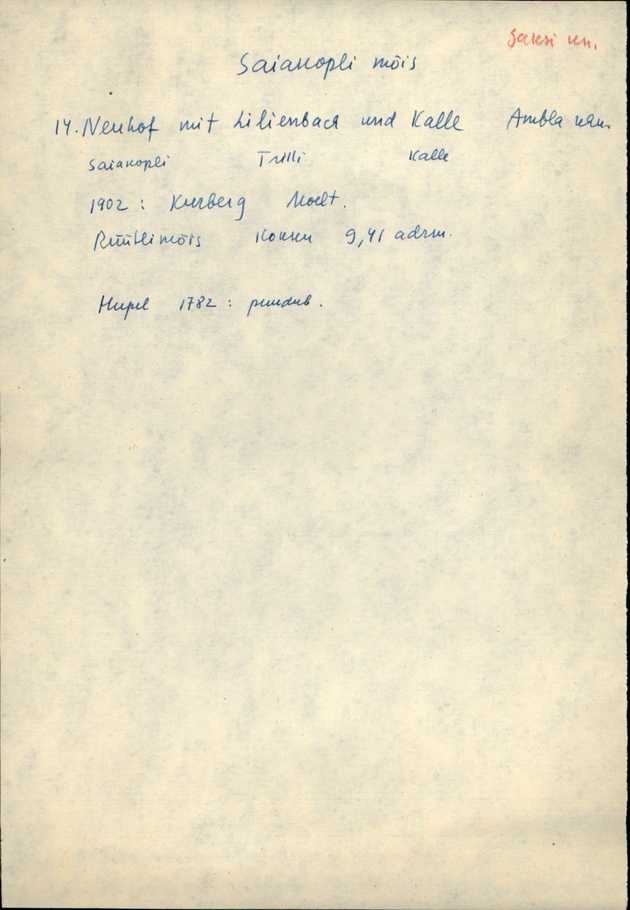 Saksi kn.
Saiakopli mõis
14. Neuhof mit Lilienbach und Kalle Ambla
Saiakopli Trilli Kalle
1902 : Kurberg
Rüütlimõis Kokku 9,41 adrm.
Hupel 1782 : puudub.